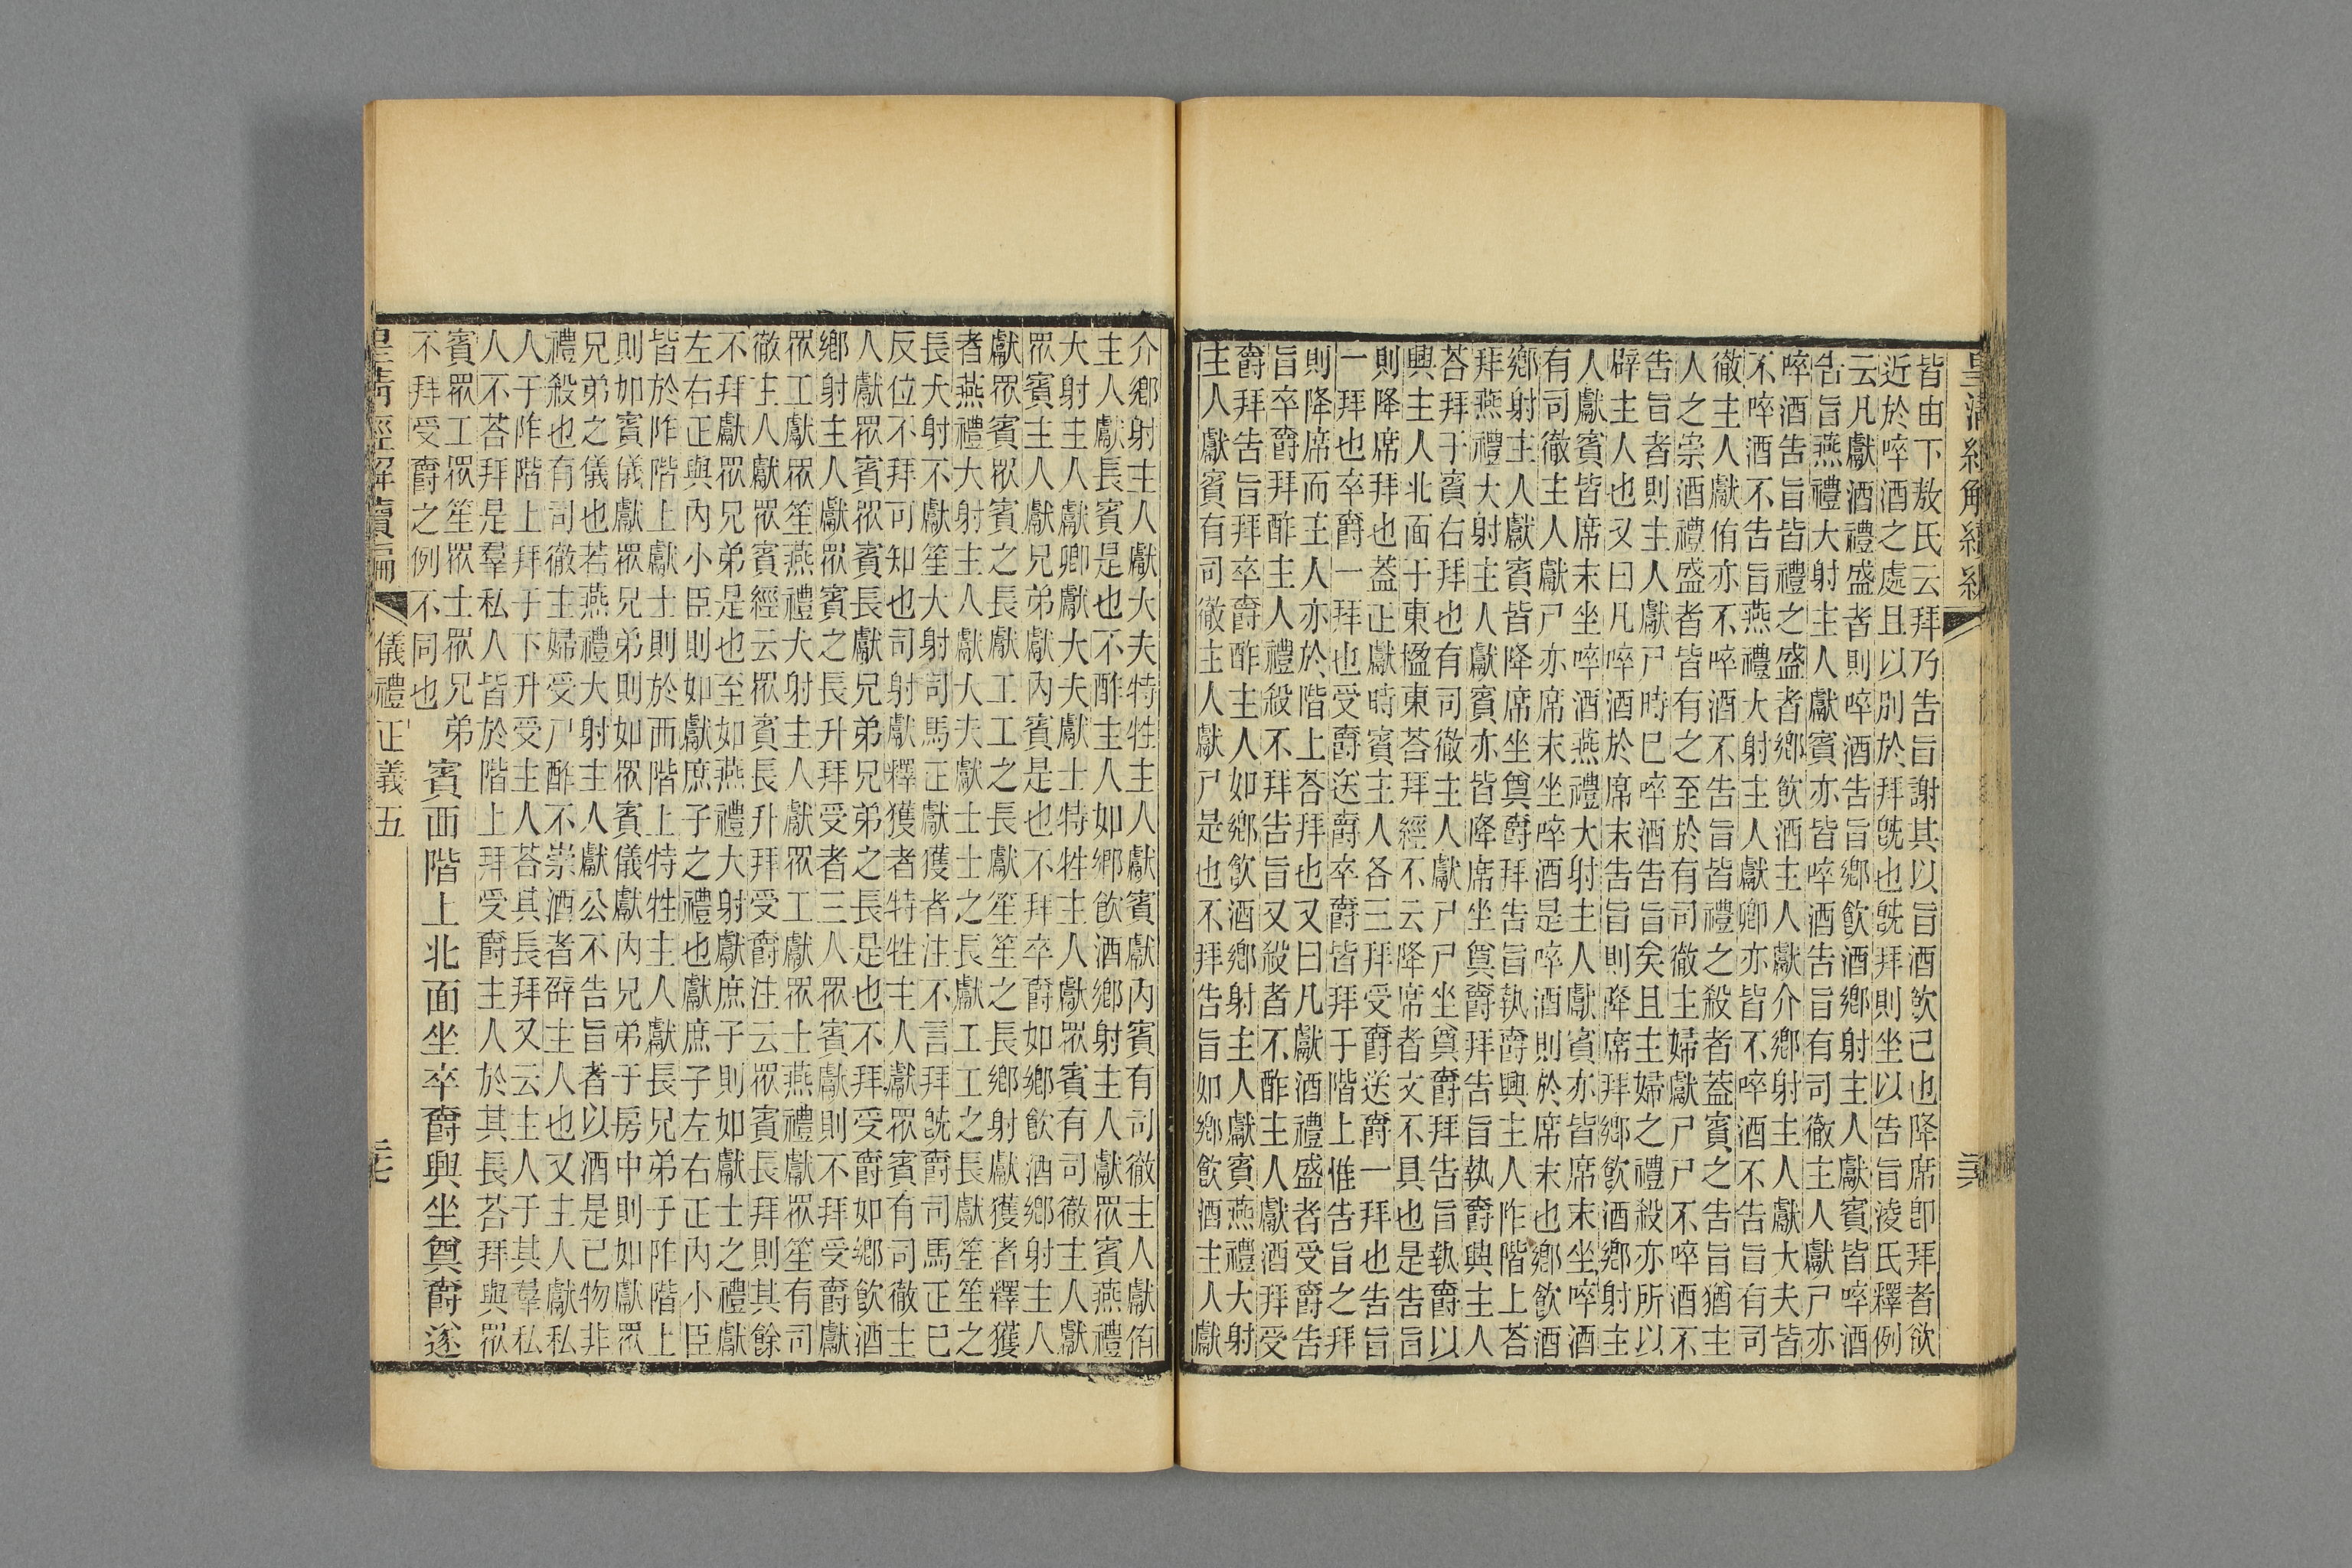 皆由下敖氏云拜乃告旨謝其以旨酒飲己也降席即拜者欲
近於啐酒之處且以別於拜旣也旣拜則坐以告旨淩氏釋例
云凡獻酒禮盛者則啐酒告旨鄉飲酒鄉射主人獻賓皆啐酒
告旨燕禮大射主人獻賓亦皆啐酒告旨有司徹主人獻尸亦
啐酒告旨皆禮之盛者鄉飲酒主人獻介鄉射主人獻大夫皆
不啐酒不告旨燕禮大射主人獻卿亦皆不啐酒不告旨有司
徹主人獻侑亦不啐酒不告旨皆禮之殺者蓋賓之告旨猶主
人之崇酒禮盛者皆有之至於有司徹主婦獻尸尸不啐酒不
告旨者則主人獻尸時已啐酒告旨矣且主婦之禮殺亦所以
辟主人也又曰凡啐酒於席末告旨則降席拜鄉飲酒鄉射主
人獻賓皆席末坐啐酒燕禮大射主人獻賓亦皆席末坐啐酒
有司徹主人獻尸亦席末坐啐酒是啐酒則於席末也鄉飲酒
鄉射主人獻賓皆降席坐奠爵拜告旨執爵興主人阼階上荅
拜燕禮大射主人獻賓亦皆降席坐奠爵拜告旨執爵興主人
荅拜于賓右拜也有司徹主人獻尸尸坐奠爵拜告旨執爵以
興主人北面于東楹東荅拜經不云降席者文不具也是告旨
則降席拜也蓋正獻時賓主人各三拜受爵送爵一拜也告旨
一拜也卒爵一拜也受爵送爵卒爵皆拜于階上惟告旨之拜
則降席而主人亦於階上荅拜也又曰凡獻酒禮盛者受爵告
旨卒爵拜酢主人禮殺不拜告旨又殺者不酢主人獻酒拜受
爵拜告旨拜卒爵酢主人如鄉飲酒鄉射主人獻賓燕禮大射
主人獻賓有司徹主人獻尸是也不拜告旨如鄉飲酒主人獻
介鄉射主人獻大夫特牲主人獻賓獻內賓有司徹主人獻侑
主人獻長賓是也不酢主人如鄉飲酒鄉射主人獻眾賓燕禮
大射主人獻卿獻大夫獻士特牲主人獻眾賓有司徹主人獻
眾賓主人獻兄弟獻內賓是也不拜卒爵如鄉飲酒鄉射主人
獻眾賓眾賓之長獻工工之長獻笙笙之長鄉射獻獲者釋獲
者燕禮大射主人獻大夫獻士士之長獻工工之長獻笙笙之
長大射不獻笙大射司馬正獻獲者注不言拜旣爵司馬正已
反位不拜可知也司射獻釋獲者特牲主人獻眾賓有司徹主
人獻眾賓眾賓長獻兄弟兄弟之長是也不拜受爵如鄉飲酒
鄉射主人獻眾賓之長升拜受者三人眾賓獻則不拜受爵獻
眾工獻眾笙燕禮大射主人獻眾工獻眾士燕禮獻眾笙有司
徹主人獻眾賓經云眾賓長升拜受爵注云眾賓長拜則其餘
不拜獻眾兄弟是也至如燕禮大射獻庶子則如獻士之禮獻
左右正與內小臣則如獻庶子之禮也獻庶子左右正內小臣
皆於阼階上獻士則於西階上特牲主人獻長兄弟于阼階上
則如賓儀獻眾兄弟則如眾賓儀獻內兄弟于房中則如獻眾
兄弟之儀也若燕禮大射主人獻公不告旨者以酒是己物非
禮殺也有司徹主婦受尸酢不崇酒者辟主人也又主人獻私
人于阼階上拜于下升受主人荅其長拜又云主人于其羣私
人不荅拜是羣私人皆於階上拜受爵主人於其長荅拜與眾
賓眾工眾笙眾士眾兄弟
不拜受爵之例不同也 賓西階上北面坐卒爵興坐奠爵遂
儀禮正義五